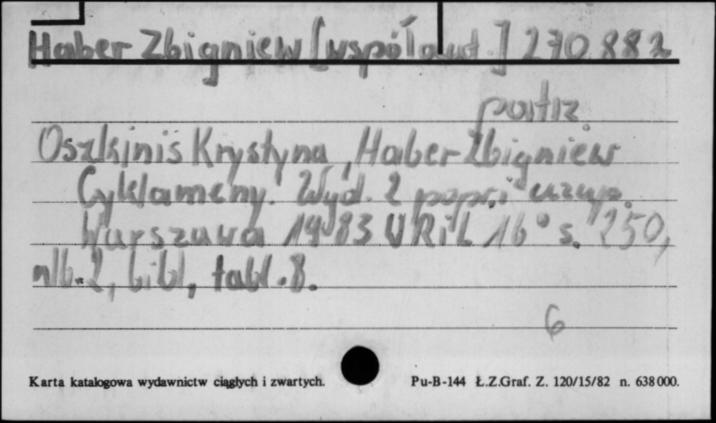 Haber Zbigniew [współaut.] 270 882
patrz
Oszkinis Krystyna, Haber Zbigniew
Cyklameny. Wyd. 2 popr. i uzup.
Warszawa 1983 WRiL 16° s. 250,
nlb. 2, bibl, tabl. 8.
6
Karta katalogowa wydawnictw ciągłych i zwartych. Pu-B-144 Ł.Z.Graf. Z. 120/15/82 n. 638 000.